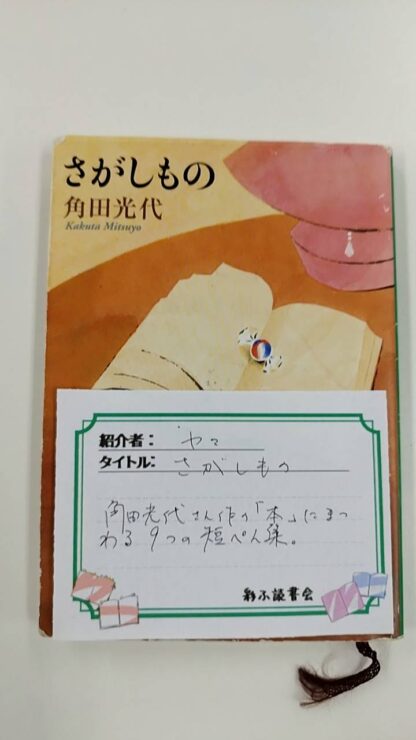 さがしもの
角田光代
Kakuta Mitsuyo
紹介者: ヤマ
タイトル: さがしもの
角田光代さん作の「本」にまつ
わる9つの短ぺん集。
彩ふ読書会